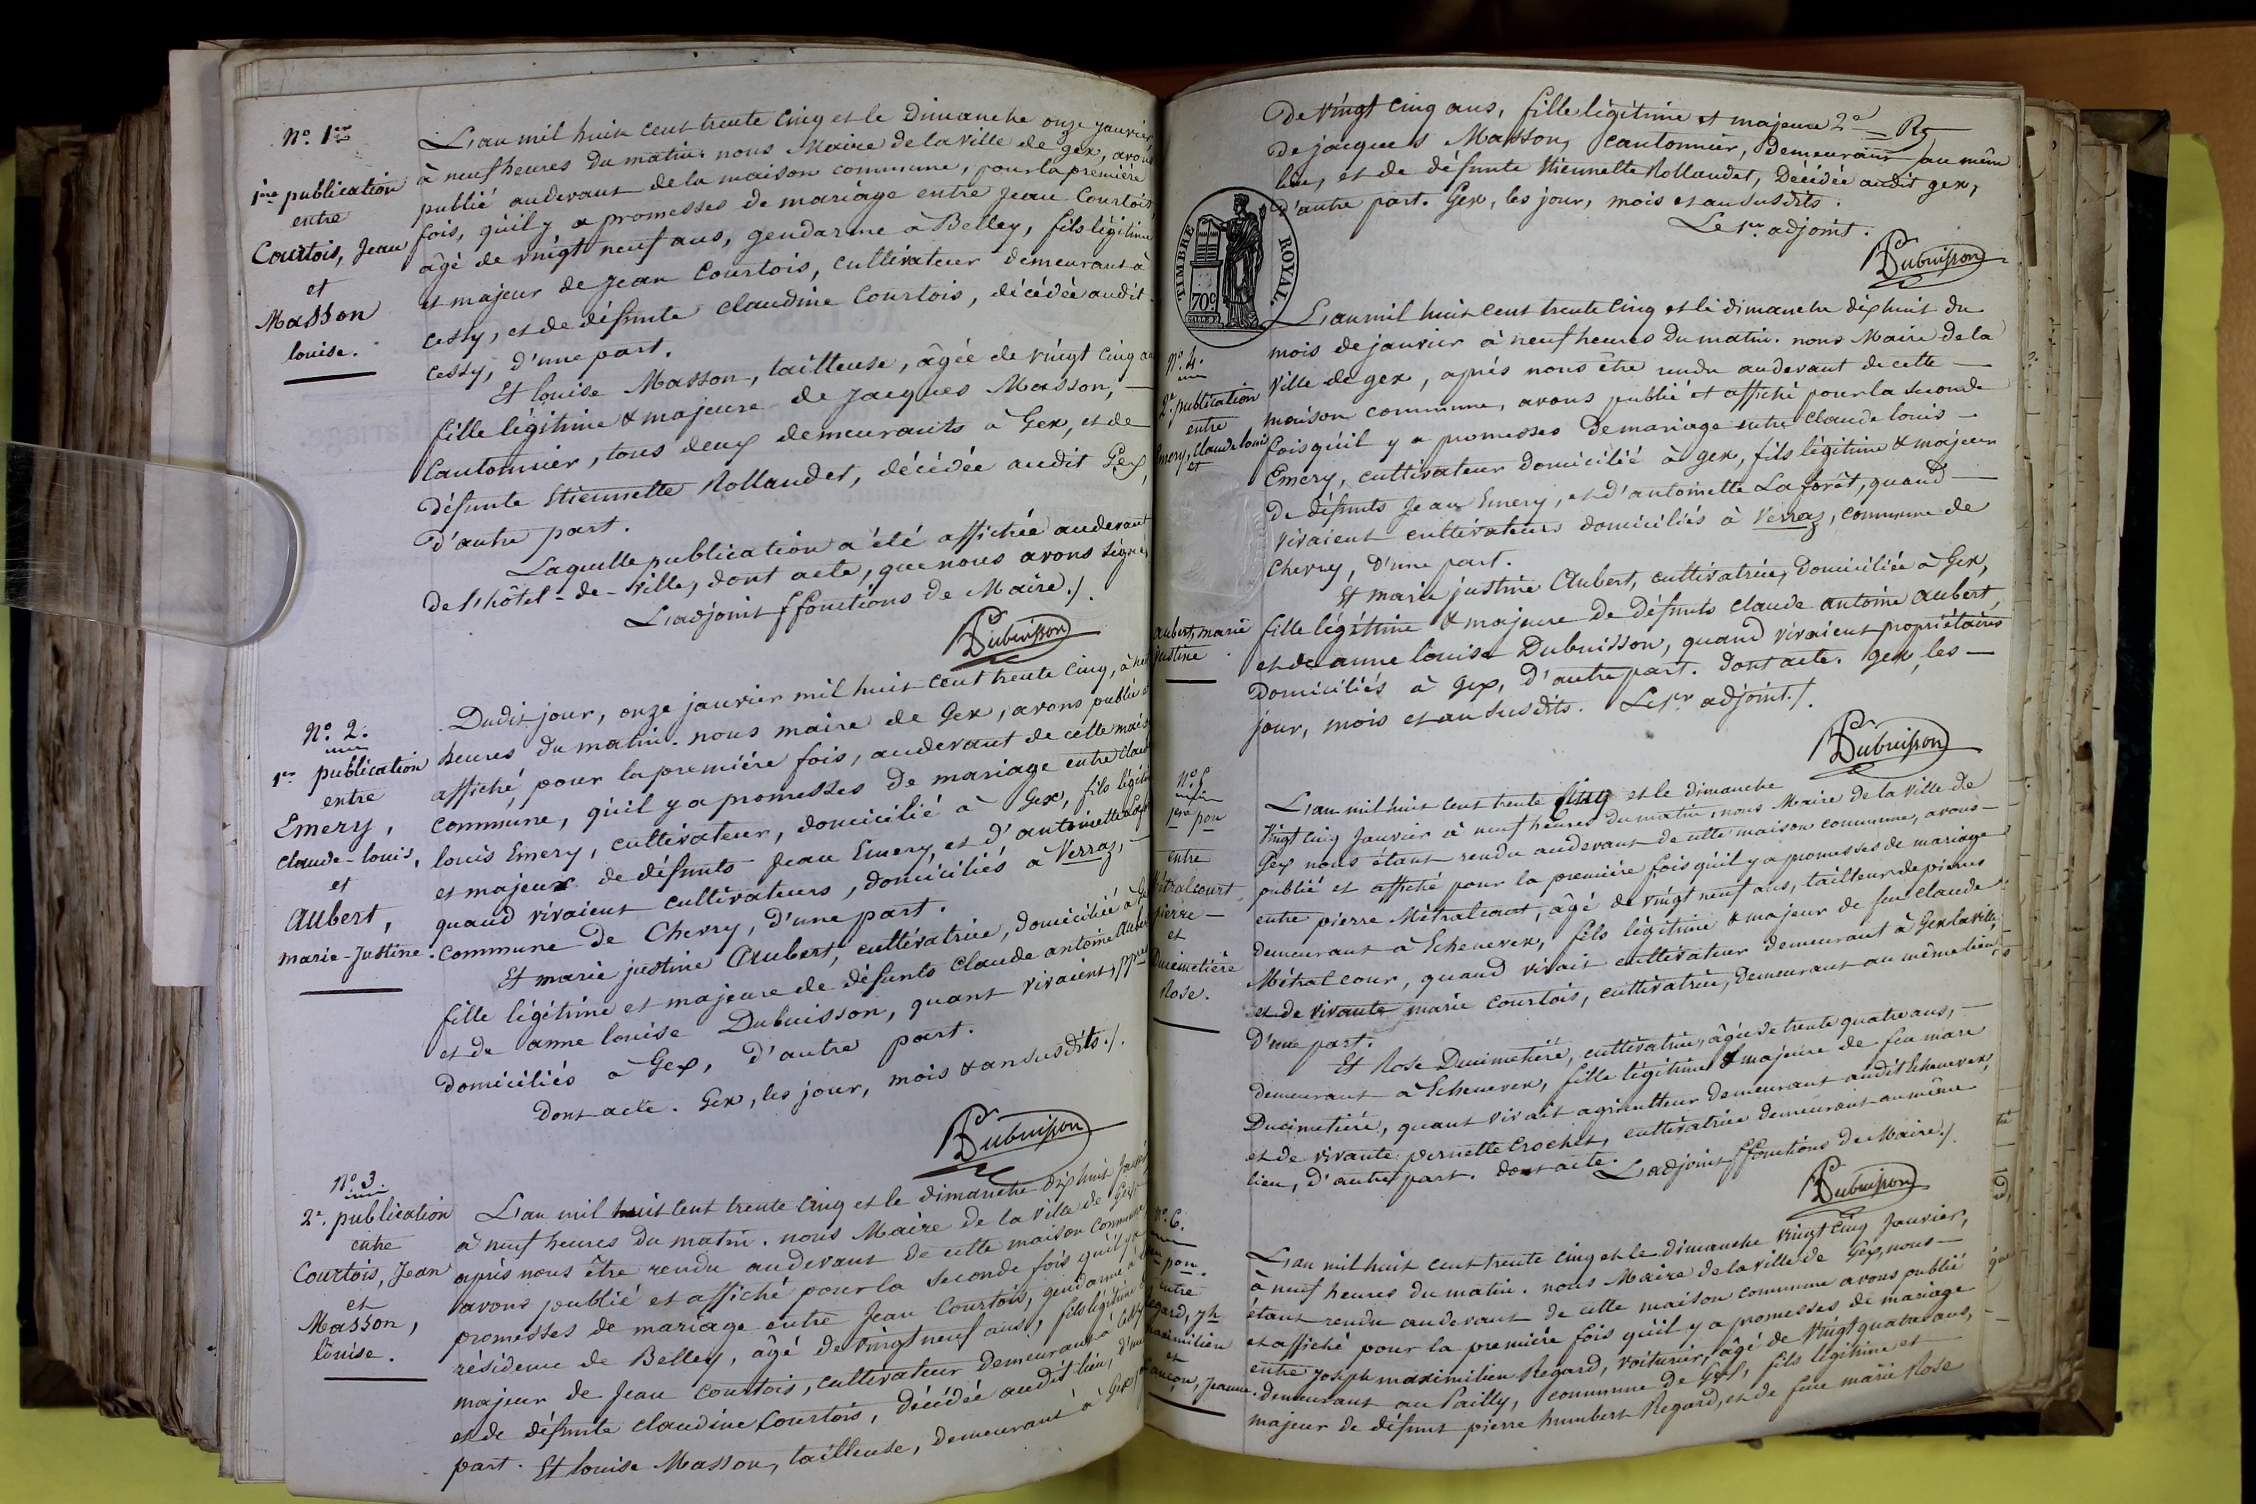 N.o 1.er
1.ere publication
entre
Courtois, Jean
et
Masson
louise.
L'an mil huit cent trente cinq et le Dimanche onze janvier
à neuf heures du matin. nous Maire de la ville de gex, avons
publié audevant de la maison commune, pour la première
fois, qu'il y a promesses de mariage entre Jean Courtois,
âgé de vingt neuf ans, gendarme à Belley, fils légitime
et majeur de Jean Courtois, cultivateur demeurant à
cessy, et de défunte claudine Courtois, décédée audit
cessy, d'une part.
Et louise Masson, tailleuse, âgée de vingt cinq ans
fille légitime & majeure de Jacques Masson, —
Cantonnier, tous deux demeurants à Gex, et de
défunte Etiennette Rollandet, décédée audit Gex,
d'autre part.
Laquelle publication a été affichée audevant
de l'hôtel-de-ville, dont acte, que nous avons signé,
L'adjoint ffonctions de Maire./.
Dubuisson
N.o 2.
1.re publication
entre
Emery,
claude-louis,
et
Aubert,
marie-Justine.
Dudit jour, onze janvier mil huit cent trente cinq, à neuf
heures du matin. nous maire de Gex, avons publié et
affiché, pour la première fois, audevant de cette maison
commune, qu'il y a promesses de mariage entre Claude
louis Emery, cultivateur, domicilié à Gex, fils légitime
et majeur de défunts Jean Emery, et d'antoinette Laforêt
quand vivaient cultivateurs, domiciliés à Verraz, —
commune de Chevry, d'une part.
Et marie justine Aubert, cultivatrice, domiciliée à Gex
fille légitime et majeure de défunts claude antoine Aubert
et de anne louise Dubuisson, quant vivaient, ppres
domiciliés à Gex, d'autre part.
Dont acte. Gex, les jour, mois & an susdits./.
Dubuisson
N.o 3
2.e publication
entre
Courtois, Jean
et
Masson,
louise.
L'an mil huit cent trente cinq et le dimanche dix huit Janvier
à neuf heures du matin. nous Maire de la ville de Gex
après nous être rendu audevant de cette maison commune
avons publié et affiché pour la seconde fois qu'il y a
promesses de mariage entre Jean Courtois, gendarme à la
résidence de Belley, âgé de vingt neuf ans, fils légitime &
majeur de Jean Courtois, cultivateur demeurant à Cessy
et de défunte claudine Courtois, décédée audit lieu, d'une
part. Et louise Masson, tailleuse, demeurant à Gex,
De vingt cinq ans, fille légitime et majeure 2.e Rg
De jacques Masson, cantonnier, demeurant au même
lieu, et de défunte Etiennette Rollandet, Décédée audit gex,
d'autre part. Gex, les jour, mois et an susdits.
Le 1.er adjoint.
Dubuisson
TIMBRE ROYAL.
70c
N.o 4.
2.e publication
entre
Emery, Claude louis
et
Aubert, marie
justine.
L'an mil huit cent trente cinq et le dimanche dix huit du
mois de janvier à neuf heures du matin. nous Maire de la
ville de gex, après nous être rendu audevant de cette —
maison commune, avons publié et affiché pour la seconde
fois qu'il y a promesses de mariage entre claude louis —
Emery, cultivateur domicilié à gex, fils légitime & majeur
de défunts Jean Emery, et d'antoinette Laforêt, quand —
vivaient cultivateurs domiciliés à Verraz, commune de
Chevry, d'une part.
Et marie justine Aubert, cultivatrice, domiciliée à Gex,
fille légitime & majeure de défunts claude antoine Aubert,
et de anne louise Dubuisson, quand vivaient propriétaires
Domiciliés à Gex, d'autre part. dont acte. Gex, les —
jour, mois et an susdits. Le 1.er adjoint./.
Dubuisson
N.o 5
1.ere pon
entre
Métralcourt
pierre —
et
Ducimetière
Rose.
L'an mil huit cent trente cinq et le dimanche
Vingt cinq Janvier à neuf heures du matin, nous Maire de la ville de
Gex nous étant rendu audevant de cette maison commune, avons —
publié et affiché pour la première fois qu'il y a promesses de mariage
entre pierre Métralcourt, âgé de vingt neuf ans, tailleur de pierres
demeurant à Echenevex, fils légitime & majeur de feu claude
Métralcour, quand vivait cultivateur demeurant à Gex la ville,
et de vivante marie courtois, cultivatrice, demeurant au même lieu,
D'une part.
Et Rose Ducimetière, cultivatrice, âgée de trente quatre ans, —
demeurant à Echenevex, fille légitime & majeure de feu marc
Ducimetière, quant vivait agriculteur demeurant audit Echenevex,
et de vivante pernette Crochet, cultivatrice demeurant au même
lieu, d'autre part. dont acte. L'adjoint ffonctions de Maire./.
Dubuisson
N.o 6.
pon.
entre
Regard, jh
maximilien
et
Jeanne.
L'an mil huit cent trente cinq et le dimanche vingt cinq Janvier,
à neuf heures du matin. nous Maire de la ville de Gex, nous —
étant rendu audevant de cette maison commune avons publié
et affiché pour la première fois qu'il y a promesses de mariage
entre joseph maximilien Regard, voiturier, âgé de vingt quatre ans,
demeurant au Pailly, commune de Gex, fils légitime et
majeur de défunt pierre humbert Regard, et de feue marie Rose